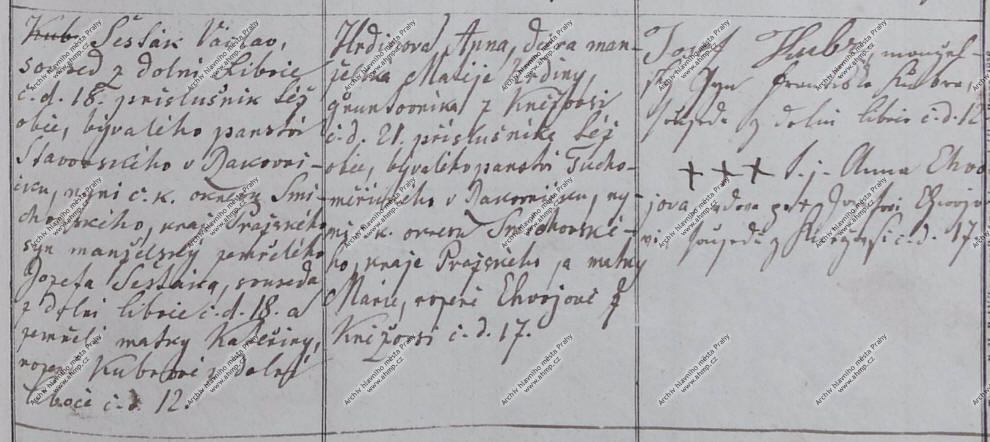 Kub. Šesták Václav,
soused z dolní Liboce
č. d. 18. příslušník též
obce, bývalého panství
Stavovského v Rakovni-
cku, nyní c. k. okresu Smí-
chovského, kraje Pražského
syn manželský zemřelého
Jozefa Šestáka, souseda
z dolní liboce č. d. 18. a
zemřelé matky Kateřiny,
rozené Kubrové z dolní
liboce č. d. 12.
Hrdinova Anna, dcera man-
želská Matěje Hrdiny,
gruntovníka z Kněževsi
č. d. 21. příslušníka též
obce, bývalého panství Tucho-
měřického v Rakovnicku, ny-
ní c. k. okresu Smíchovské-
ho, kraje Pražského, a matky
Marie, rozené Chvojové z
Kněževsi č. d. 17.
Josef Kubr, manžel-
ský syn Františka Kubra,
souseda z dolní liboce č. d. 12
+++ t. j. Anna Chvo-
jova, vdova po Josefovi Chvojo-
vi, sousedu z Kněževsi č. d. 17.
Archiv hlavního města Prahy
www.ahmp.cz